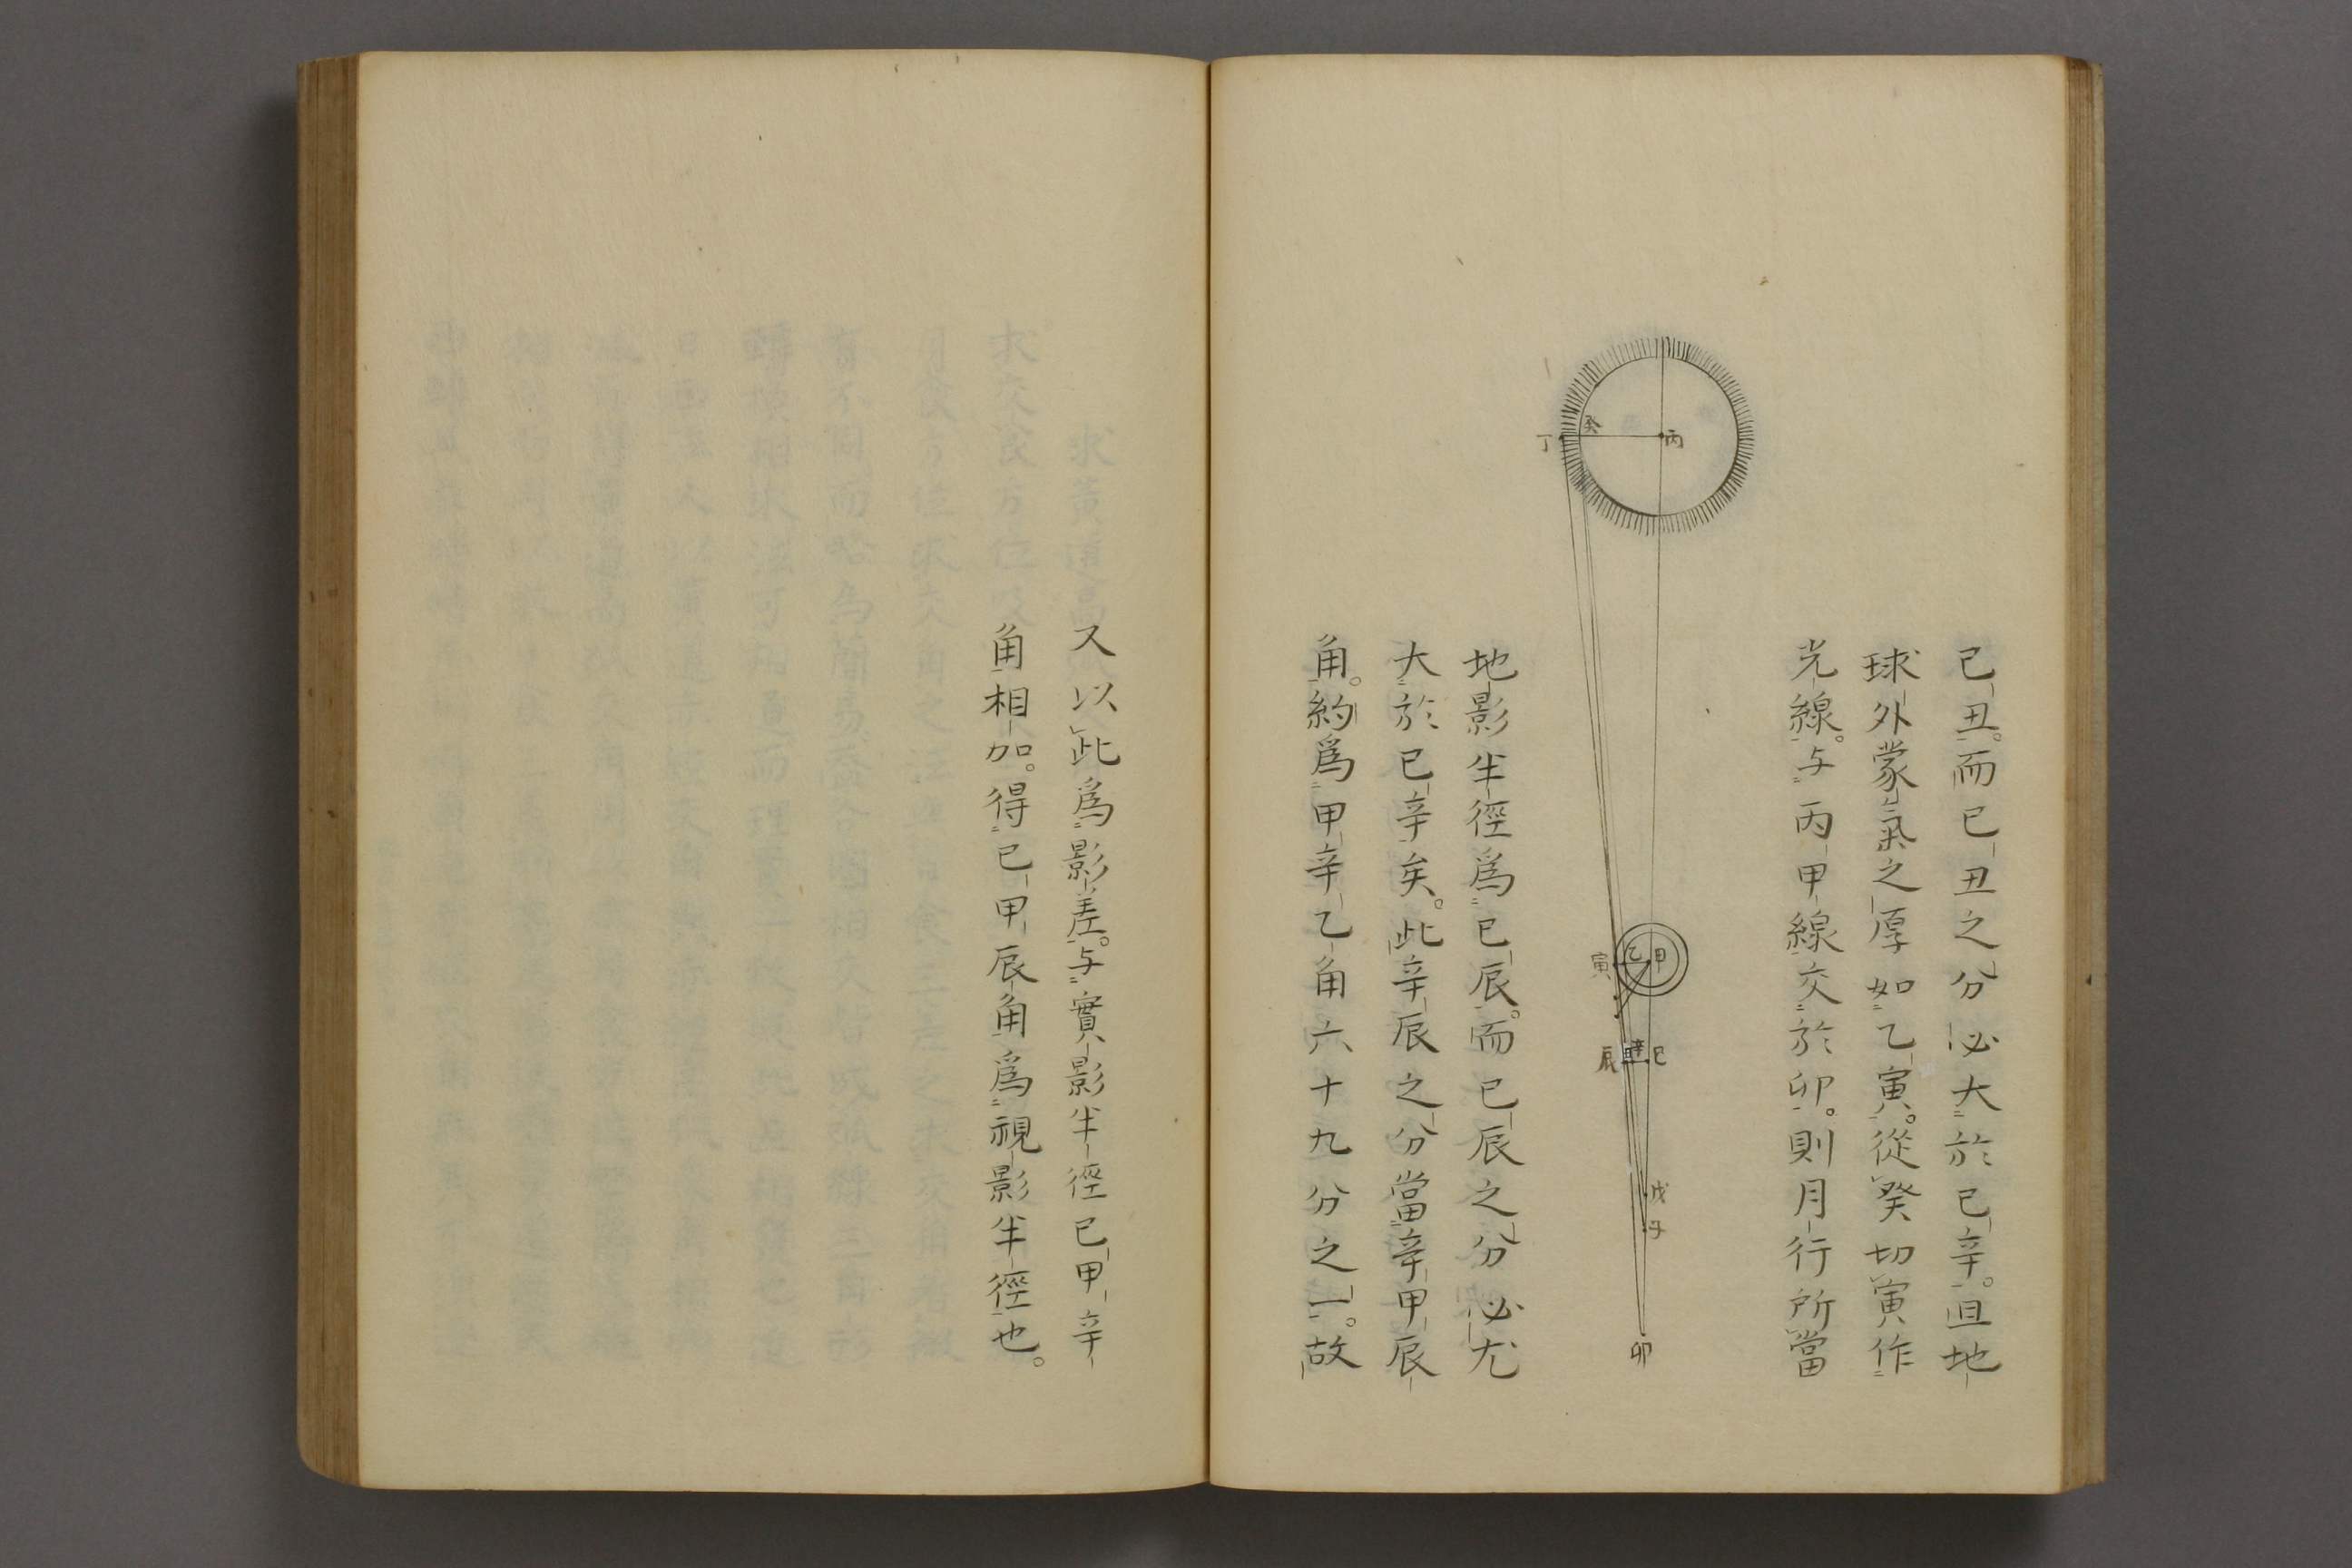 己丑。而己丑之分必大於己辛。且地
球外蒙氣之厚如乙寅。從癸切寅作
光線。与丙甲線交於卯。則月行所當
丁
癸
丙
寅
乙
甲
辰
己
戊
子
卯
地影半徑爲己辰。而己辰之分必尤
大於己辛矣。此辛辰之分當辛甲辰
角。約爲甲辛乙角六十九分之一。故
又以此爲影差。与實影半徑己甲辛
角相加。得己甲辰角爲視影半徑也。